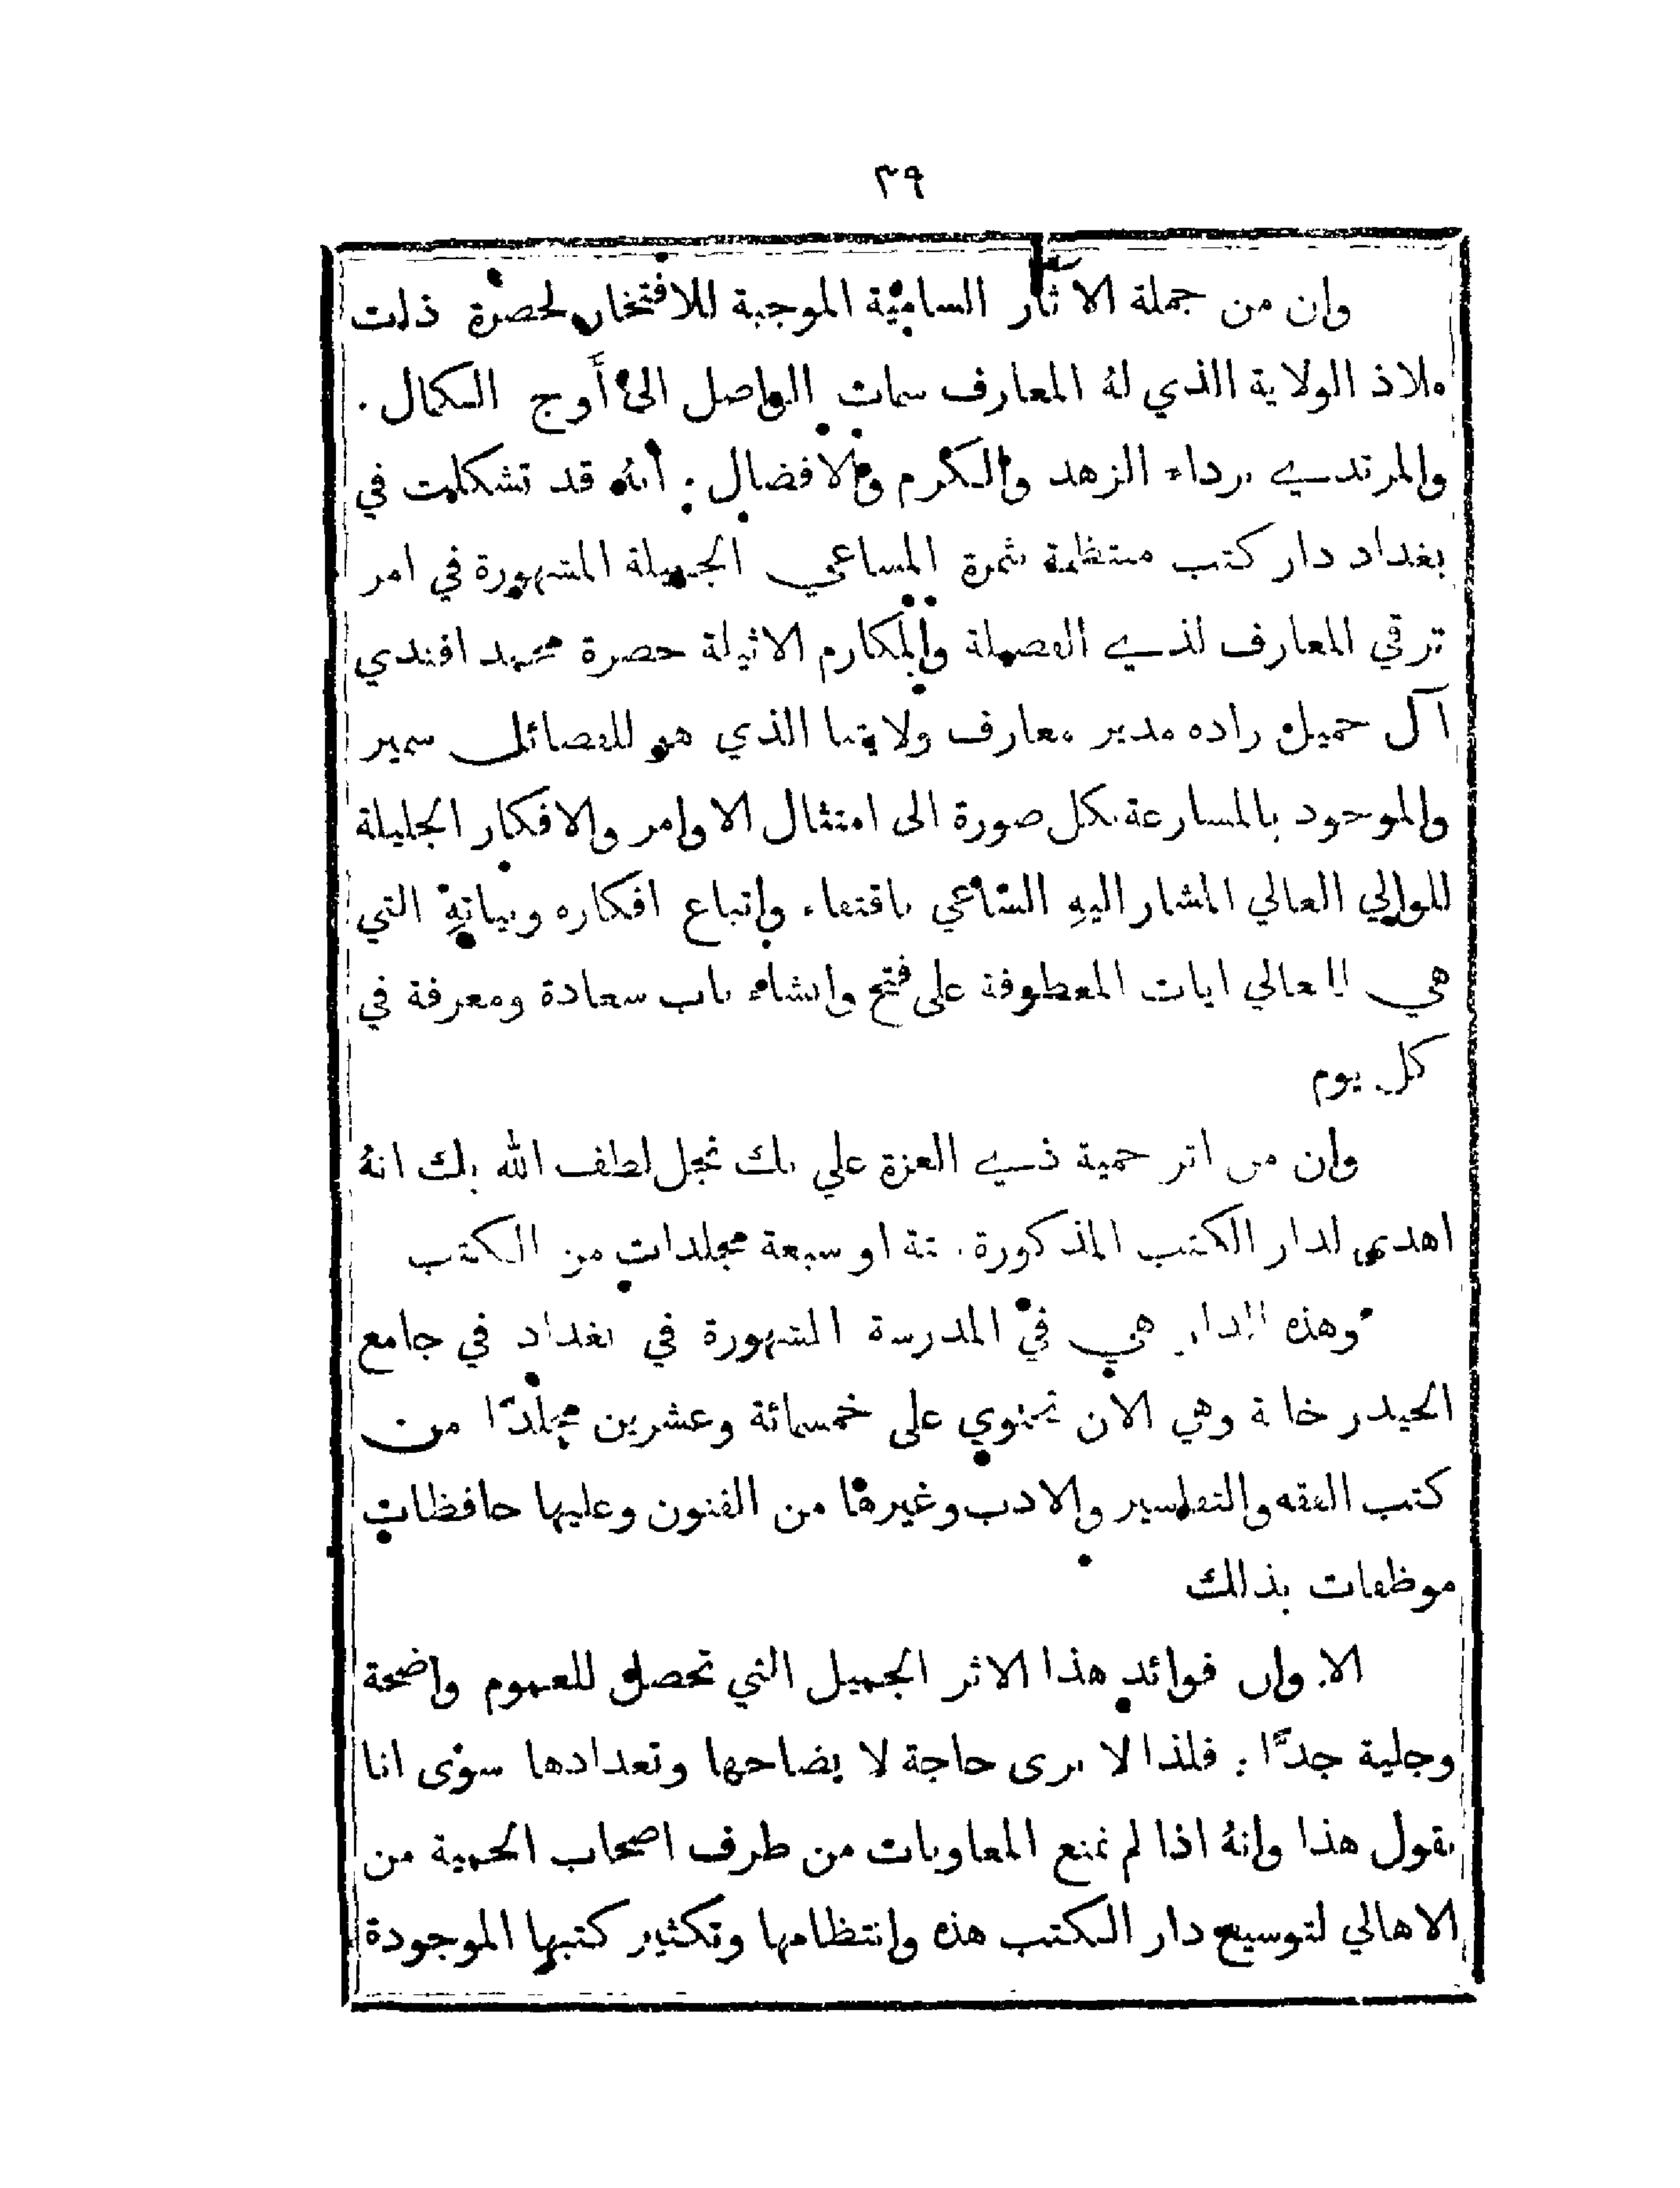 ٣٩
وان من جملة الآثار السامية الموجبة للافتخار لحضرة ذات
ملاذ الولاية الذي له المعارف سمات الواصل الى أوج الكمال .
والمرتدي برداء الزهد والكرم والافضال . أنه قد تشكلت في
بغداد دار كتب منتظمة ثمرة المساعي الجميلة المشهورة في امر
ترقي المعارف لذي الفضيلة والمكارم الاثيلة حضرة محمد افندي
آل جميل زاده مدير معارف ولايتنا الذي هو للفضائل سمير
والموجود بالمسارعة بكل صورة الى امتثال الاوامر والافكار الجليلة
للوالي العالي المشار اليهِ الساعي باقتفاء واتباع افكاره ونياتهِ التي
هي للمعالي ايات المعطوفة على فتح وانشاء باب سعادة ومعرفة في
كل يوم
وان من اثر حمية ذي العزة علي بك نجل لطف الله بك انهُ
اهدى لدار الكتب المذكورة ستة او سبعة مجلدات من الكتب
وهذه الدار هي في المدرسة المشهورة في بغداد في جامع
الحيدر خانة وهي الان تحتوي على خمسمائة وعشرين مجلدًا من
كتب الفقه والتفاسير والادب وغيرها من الفنون وعليها حافظات
موظفات بذلك
الا وان فوائد هذا الاثر الجميل التي تحصل للعموم واضحة
وجلية جدًّا . فلذا لا نرى حاجة لا يضاحها وتعدادها سوى انا
نقول هذا وانهُ اذا لم تمنع المعاونات من طرف اصحاب الحمية من
الاهالي لتوسيع دار الكتب هذه وانتظامها وتكثير كتبها الموجودة